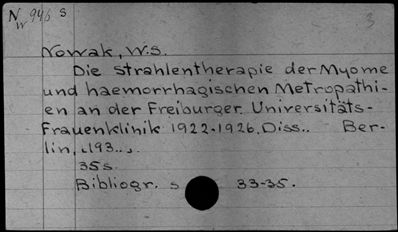 Nw 946 s
3
Nowak, W.S.
Die Strahlentherapie der Myome
und haemorrhagischen Metropathi-
en an der Freiburger Universitäts-
Frauenklinik 1922-1926. Diss.. Ber-
lin, 193..
35s.
Bibliogr. s 33-35.